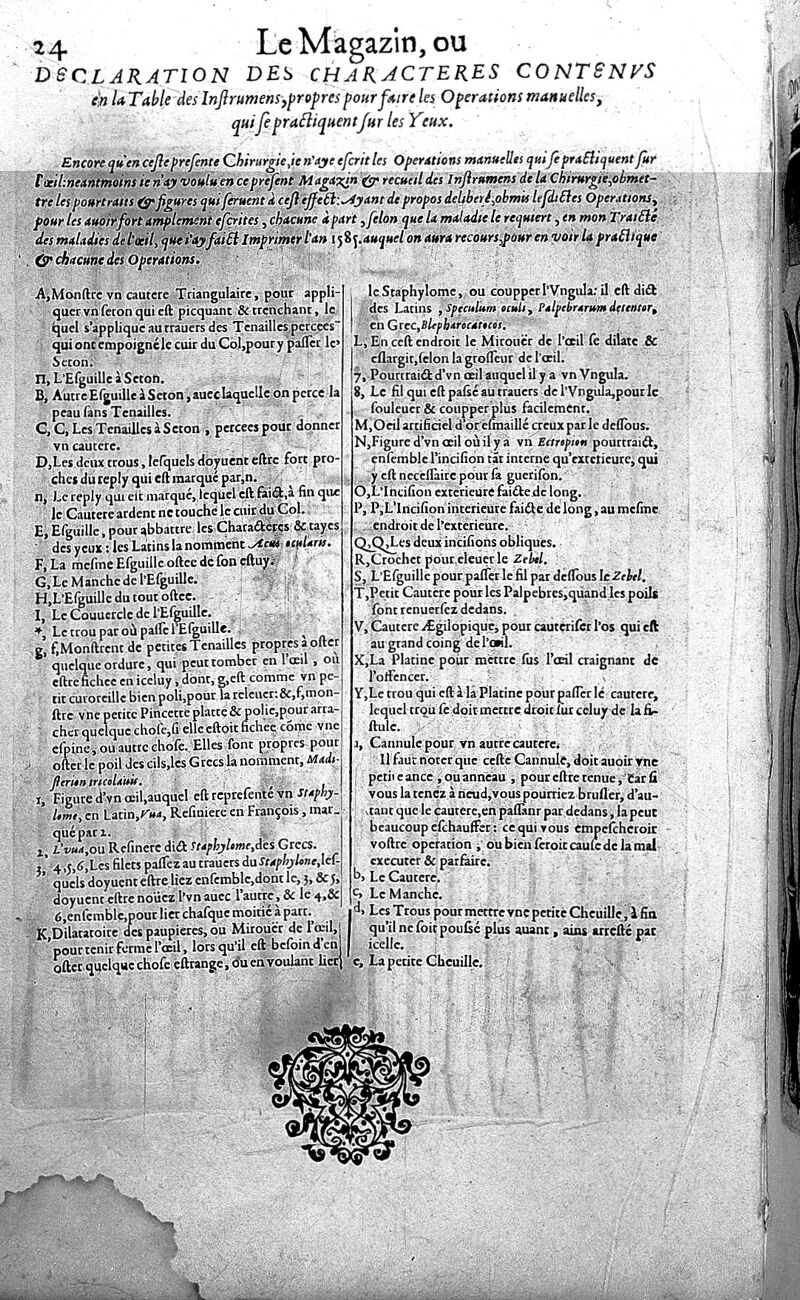 24
Le Magazin, ou
DECLARATION DES CHARACTERES CONTENVS
en la Table des Inſtrumens, propres pour faire les Operations manuelles,
qui ſe practiquent ſur les Yeux.
Encore qu'en ceſte preſente Chirurgie, ie n'aye eſcrit les Operations manuelles qui ſe practiquent ſur
l'œil: neantmoins ie n'ay voulu en ce preſent Magazin & recueil des Inſtrumens de la Chirurgie, obmet-
tre les pourtraits & figures qui ſeruent à ceſt effect: Ayant de propos deliberé, obmis leſdictes Operations,
pour les auoir fort amplement eſcrites, chacune à part, ſelon que la maladie le requiert, en mon Traicté
des maladies de l'œil, que i'ay faict Imprimer l'an 1585. auquel on aura recours, pour en voir la practique
& chacune des Operations.
A, Monſtre vn cautere Triangulaire, pour appli-
quer vn ſeton qui eſt picquant & trenchant, le
quel s'applique au trauers des Tenailles percees
qui ont empoigné le cuir du Col, pour y paſſer le
Seton.
Π, L'Eſguille à Seton.
B, Autre Eſguille à Seton, auec laquelle on perce la
peau ſans Tenailles.
C, C, Les Tenailles à Seton, percees pour donner
vn cautere.
D, Les deux trous, leſquels doyuent eſtre fort pro-
ches du reply qui eſt marqué par, n.
n, Le reply qui eſt marqué, lequel eſt faict, à fin que
le Cautere ardent ne touche le cuir du Col.
E, Eſguille, pour abbattre les Characteres & tayes
des yeux: les Latins la nomment Acus ocularis.
F, La meſme Eſguille oſtee de ſon eſtuy.
G, Le Manche de l'Eſguille.
H, L'Eſguille du tout oſtee.
I, Le Couuercle de l'Eſguille.
*, Le trou par où paſſe l'Eſguille.
g, f, Monſtrent de petites Tenailles propres à oſter
quelque ordure, qui peut tomber en l'œil, où
eſtre fichee en iceluy, dont, g, eſt comme vn pe-
tit curoreille bien poli, pour la releuer: &, f, mon-
ſtre vne petite Pincette platte & polie, pour arra-
cher quelque choſe, ſi elle eſtoit fichee cõme vne
eſpine, ou autre choſe. Elles ſont propres pour
oſter le poil des cils, les Grecs la nomment, Madi-
ſterion tricolauis.
1, Figure d'vn œil, auquel eſt repreſenté vn Staphy-
lome, en Latin, Vua, Reſiniere en François, mar-
qué par 2.
2, L'vua, ou Reſinere dict Staphylome, des Grecs.
3, 4, 5, 6, Les filets paſſez au trauers du Staphylone, leſ-
quels doyuent eſtre liez enſemble, dont le, 3, & 5,
doyuent eſtre noüez l'vn auec l'autre, & le 4, &
6, enſemble, pour lier chaſque moitié à part.
K, Dilatatoire des paupieres, ou Mirouër de l'œil,
pour tenir ferme l'œil, lors qu'il eſt beſoin d'en
oſter quelque choſe eſtrange, ou en voulant lier
le Staphylome, ou coupper l'Vngula: il eſt dict
des Latins, Speculum oculi, Palpebrarum detentor,
en Grec, Blepharocatocos.
L, En ceſt endroit le Mirouër de l'œil ſe dilate &
eſlargit, ſelon la groſſeur de l'œil.
7, Pourtraict d'vn œil auquel il y a vn Vngula.
8, Le fil qui eſt paſſé au trauers de l'Vngula, pour le
ſouleuer & coupper plus facilement.
M, Oeil artificiel d'or eſmaillé creux par le deſſous.
N, Figure d'vn œil où il y a vn Ectropion pourtraict,
enſemble l'inciſion tãt interne qu'exterieure, qui
y eſt neceſſaire pour ſa gueriſon.
O, L'Inciſion exterieure faicte de long.
P, P, L'Inciſion interieure faicte de long, au meſme
endroit de l'exterieure.
Q, Q, Les deux inciſions obliques.
R, Crochet pour eleuer le Zebel.
S, L'Eſguille pour paſſer le fil par deſſous le Zebel.
T, Petit Cautere pour les Palpebres, quand les poils
ſont renuerſez dedans.
V, Cautere Ægilopique, pour cauteriſer l'os qui eſt
au grand coing de l'œil.
X, La Platine pour mettre ſus l'œil craignant de
l'offencer.
Y, Le trou qui eſt à la Platine pour paſſer le cautere,
lequel trou ſe doit mettre droit ſur celuy de la fi-
ſtule.
a, Cannule pour vn autre cautere.
Il faut noter que ceſte Cannule, doit auoir vne
petite ance, ou anneau, pour eſtre tenue, car ſi
vous la tenez à neud, vous pourriez bruſler, d'au-
tant que le cautere, en paſſant par dedans, la peut
beaucoup eſchauffer: ce qui vous empeſcheroit
voſtre operation, ou bien ſeroit cauſe de la mal
executer & parfaire.
b, Le Cautere.
c, Le Manche.
d, Les Trous pour mettre vne petite Cheuille, à fin
qu'il ne ſoit pouſſé plus auant, ains arreſté par
icelle.
e, La petite Cheuille.